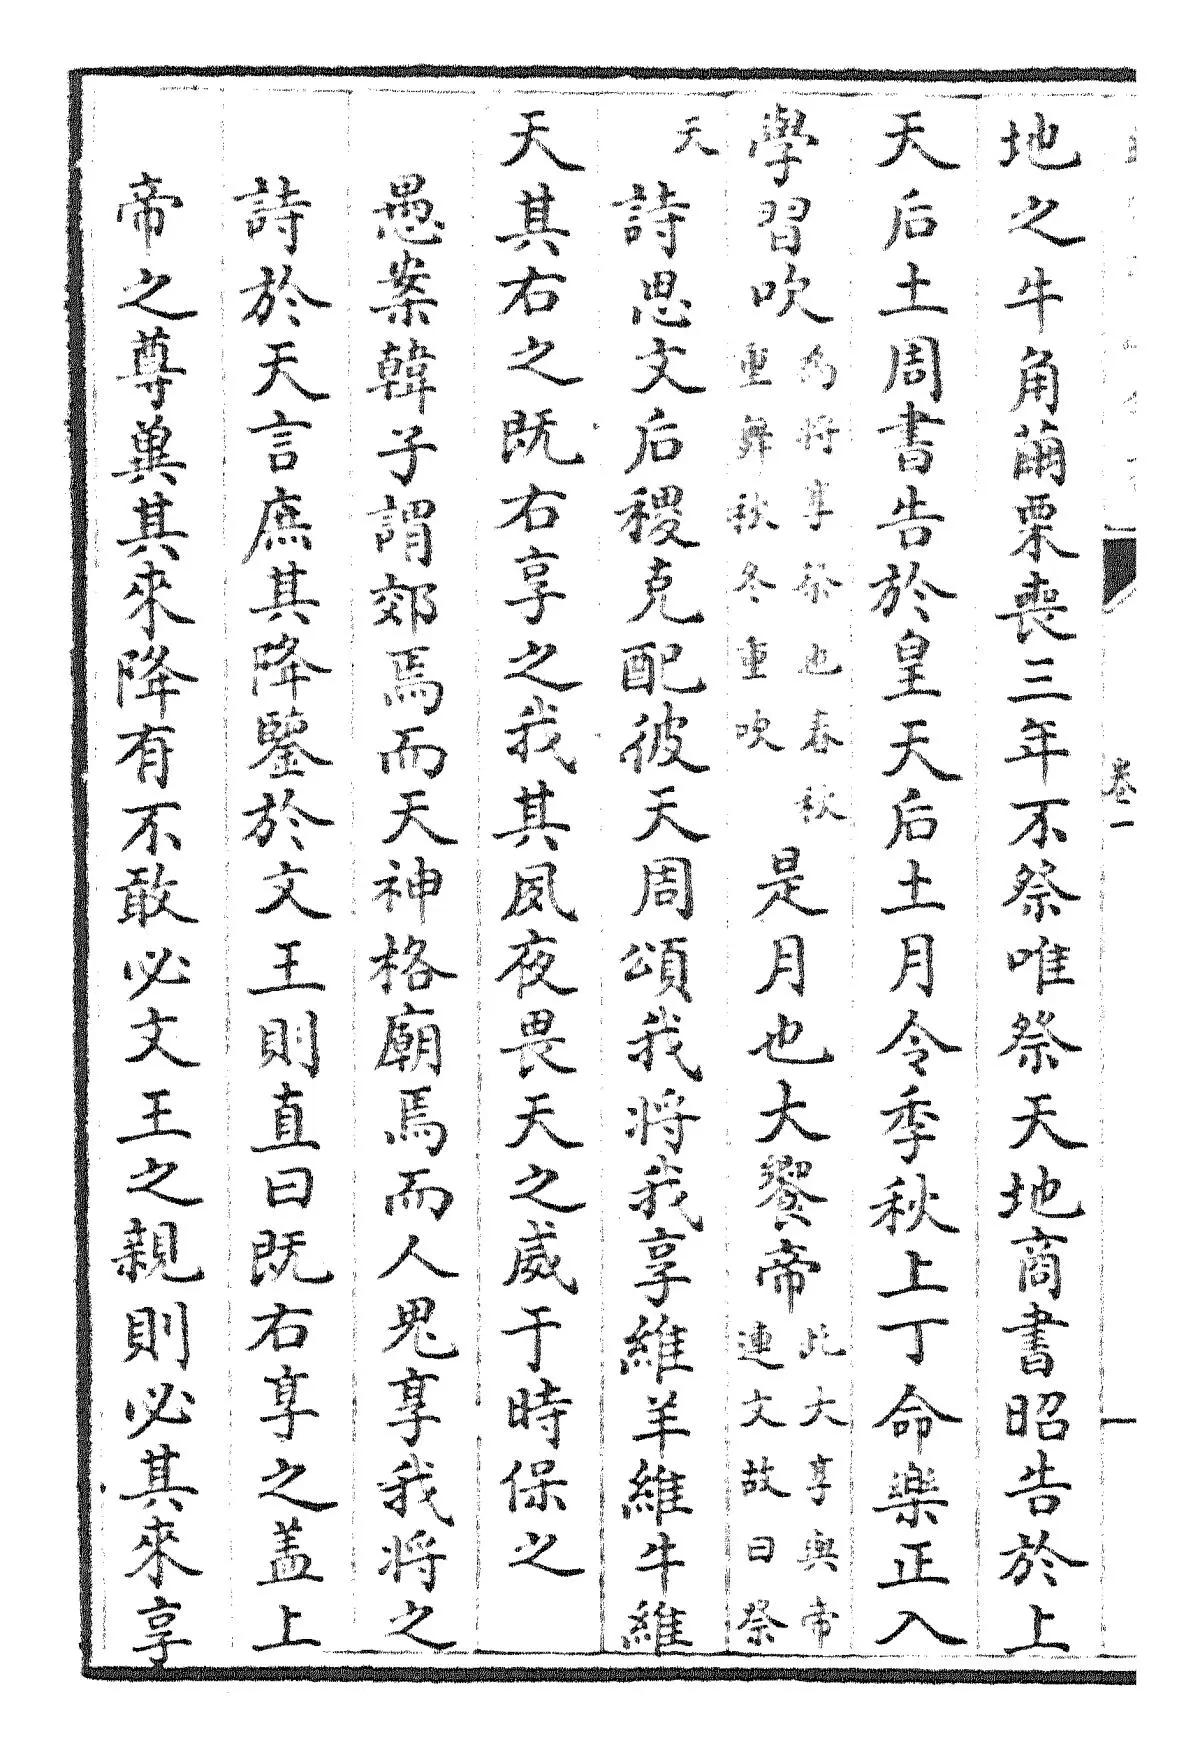 地之牛角繭栗喪三年不祭唯祭天地商書昭告於上
天后土周書告於皇天后土月令季秋上丁命樂正入
學習吹為將享祭也春秋重舞秋冬重吹是月也大饗帝此大享與帝連文故曰祭
天
詩思文后稷克配彼天周頌我將我享維羊維牛維
天其右之既右享之我其夙夜畏天之威于時保之
愚案韓子謂郊焉而天神格廟焉而人鬼享我將之
詩於天言庶其降鑒於文王則直曰既右享之盖上
帝之尊冀其來降有不敢必文王之親則必其來享
卷一